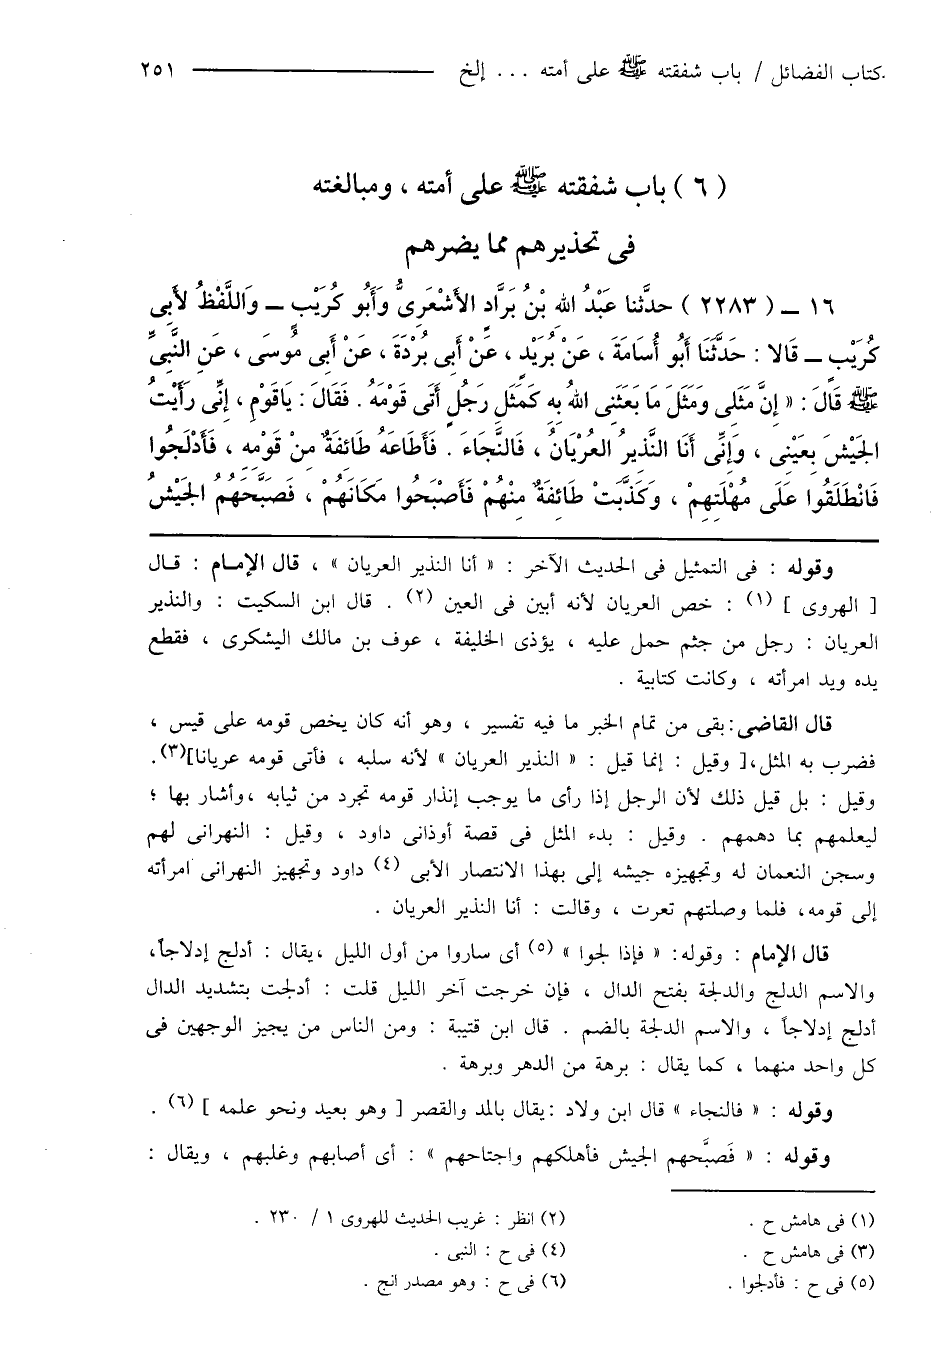 كتاب الفضائل / باب شفقته ﷺ على أمته ... إلخ ــــــــــ ٢٥١
( ٦ ) باب شفقته ﷺ على أمته ، ومبالغته
فى تحذيرهم مما يضرهم
١٦ ــ ( ٢٢٨٣ ) حدَّثنا عَبْدُ الله بْنُ بَرَّادٍ الأَشْعَرِىُّ وَأَبُو كُرَيْبٍ ــ وَاللَّفْظُ لأَبِى
كُرَيْبٍ ــ قَالا : حَدَّثَنَا أَبُو أُسَامَةَ ، عَنْ بُرَيْدٍ ، عَنْ أَبِى بُرْدَةَ ، عَنْ أَبِى مُوسَى ، عَنِ النَّبِىِّ
ﷺ قَالَ : « إِنَّ مَثَلِى وَمَثَلَ مَا بَعَثَنِى اللهُ بِهِ كَمَثَلِ رَجُلٍ أَتَى قَوْمَهُ . فَقَالَ : يَاقَوْمِ ، إِنِّى رَأَيْتُ
الجَيْشَ بِعَيْنِى ، وَإِنِّى أَنَا النَّذِيرُ العُرْيَانُ ، فَالنَّجَاءَ . فَأَطَاعَهُ طَائفَةٌ مِنْ قَوْمِهِ ، فَأَدْلَجُوا
فَانْطَلَقُوا عَلَى مُهْلَتِهِمْ ، وَكَذَّبَتْ طَائِفَةٌ مِنْهُمْ فَأَصْبَحُوا مَكَانَهُمْ ، فَصَبَّحَهُمُ الجَيْشُ
وقوله : فى التمثيل فى الحديث الآخر : « أنا النذير العريان » ، قال الإمـام : قـال
[ الهروى ] (١) : خص العريان لأنه أبين فى العين (٢) . قال ابن السكيت : والنذير
العريان : رجل من جثم حمل عليه ، يؤذى الخليفة ، عوف بن مالك اليشكرى ، فقطع
يده ويد امرأته ، وكانت كتابية .
قال القاضى : بقى من تمام الخبر ما فيه تفسير ، وهو أنه كان يخص قومه على قيس ،
فضرب به المثل،[ وقيل : إنما قيل : « النذير العريان » لأنه سلبه ، فأتى قومه عريانا](٣).
وقيل : بل قيل ذلك لأن الرجل إذا رأى ما يوجب إنذار قومه تجرد من ثيابه ،وأشار بها ؛
ليعلمهم بما دهمهم . وقيل : بدء المثل فى قصة أوذانى داود ، وقيل : النهرانى لهم
وسجن النعمان له وتجهيزه جيشه إلى بهذا الانتصار الأبى (٤) داود وتجهيز النهرانى امرأته
إلى قومه، فلما وصلتهم تعرت ، وقالت : أنا النذير العريان .
قال الإمام : وقوله: « فإذا لجوا » (٥) أى ساروا من أول الليل ،يقال : أدلج إدلاجاً،
والاسم الدلج والدلجة بفتح الدال ، فإن خرجت آخر الليل قلت : أدلجت بتشديد الدال
أدلج إدلاجاً ، والاسم الدلجة بالضم . قال ابن قتيبة : ومن الناس من يجيز الوجهين فى
كل واحد منهما ، كما يقال : برهة من الدهر وبرهة .
وقوله : « فالنجاء » قال ابن ولاد :يقال بالمد والقصر [ وهو بعيد ونحو علمه ] (٦) .
وقوله : « فَصبَّحهم الجيش فأهلكهم واجتاحهم » : أى أصابهم وغلبهم ، ويقال :
(١) فى هامش ح . (٢) انظر : غريب الحديث للهروى ١ / ٢٣٠ .
(٣) فى هامش ح . (٤) فى ح : النبى .
(٥) فى ح : فأدلجوا . (٦) فى ح : وهو مصدر انج .